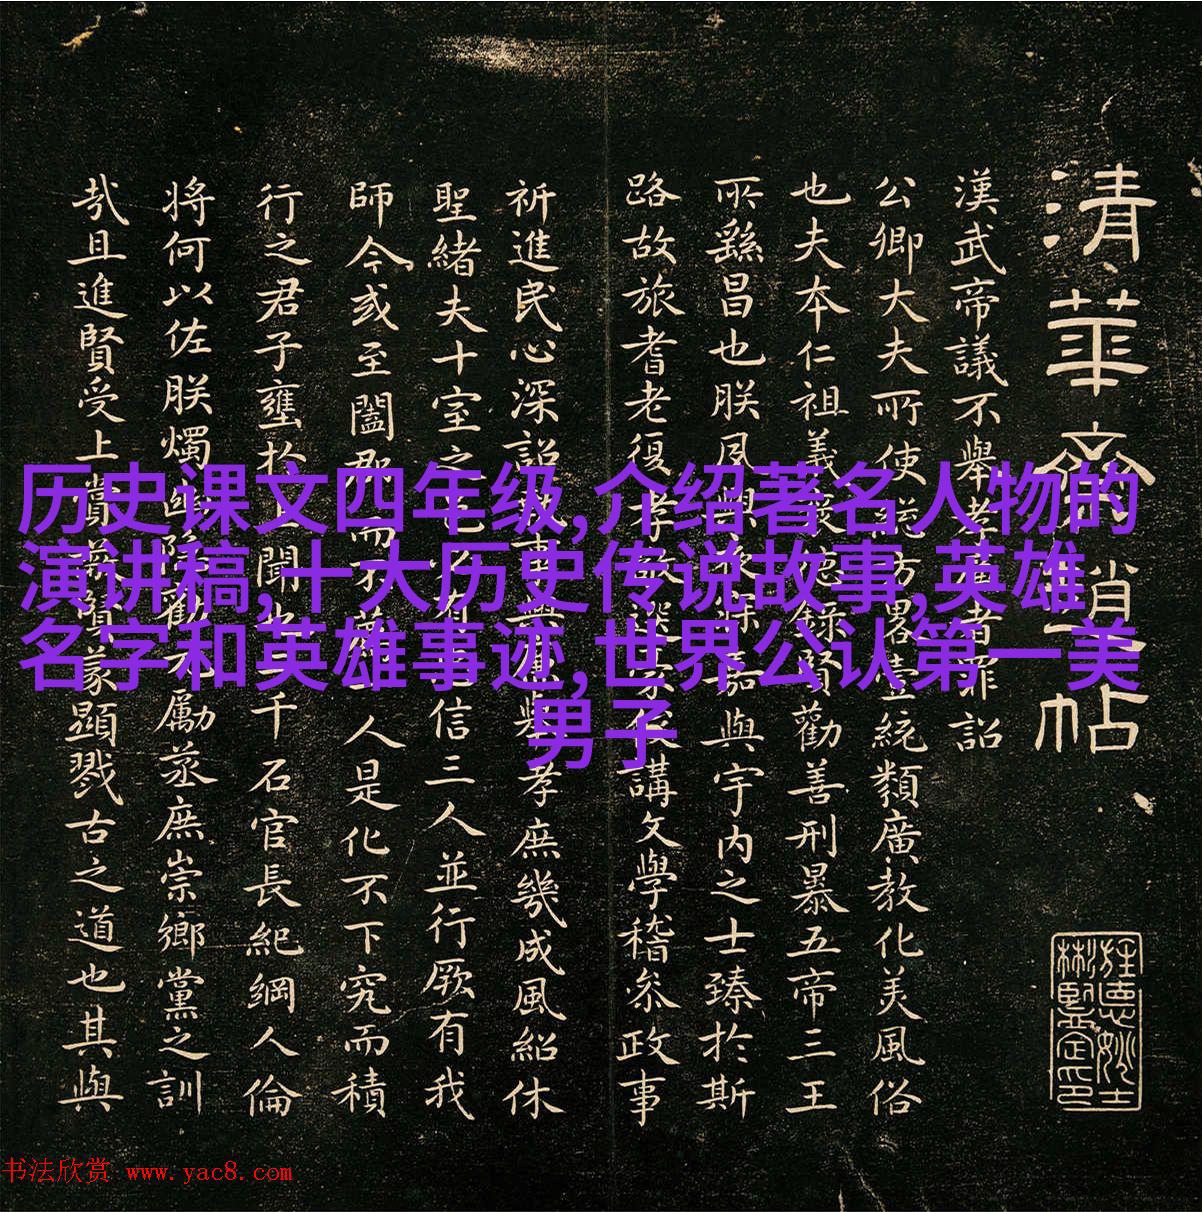 清華齋趙帖
漢武帝議不舉孝廉者罪詔
公卿大夫所使總方略壹統類廣教化美風俗
也夫本仁祖義襃德祿賢勸善刑暴五帝三王
所繇昌也朕夙興夜寐嘉與宇内之士臻於斯
路故旅耆老復孝敬選豪俊講文學稽叅政事
祈進民心深詔執事興廉舉孝庶幾成風紹休
聖緒夫十室之邑必有忠信三人並行厥有我
師今或至闔郡而不薦一人是化不下究而積
行之君子壅於上聞也二千石官長紀綱人倫
將何以佐朕燭幽隱勸元勵蒸庶崇鄉黨之訓
哉且進賢受上賞蔽賢蒙顯戮古之道也其與
历史课文四年级,介绍著名人物的
演讲稿,十大历史传说故事,英雄
名字和英雄事迹,世界公认第一美
男子
书法欣赏 www.yac8.com